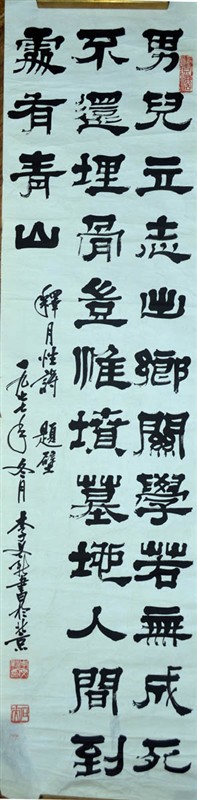 男兒立志出鄉關學若無成死
不還埋骨豈惟墳墓地人間到
處有青山
釋月性詩 題壁
一九七七年冬月 李書於北京